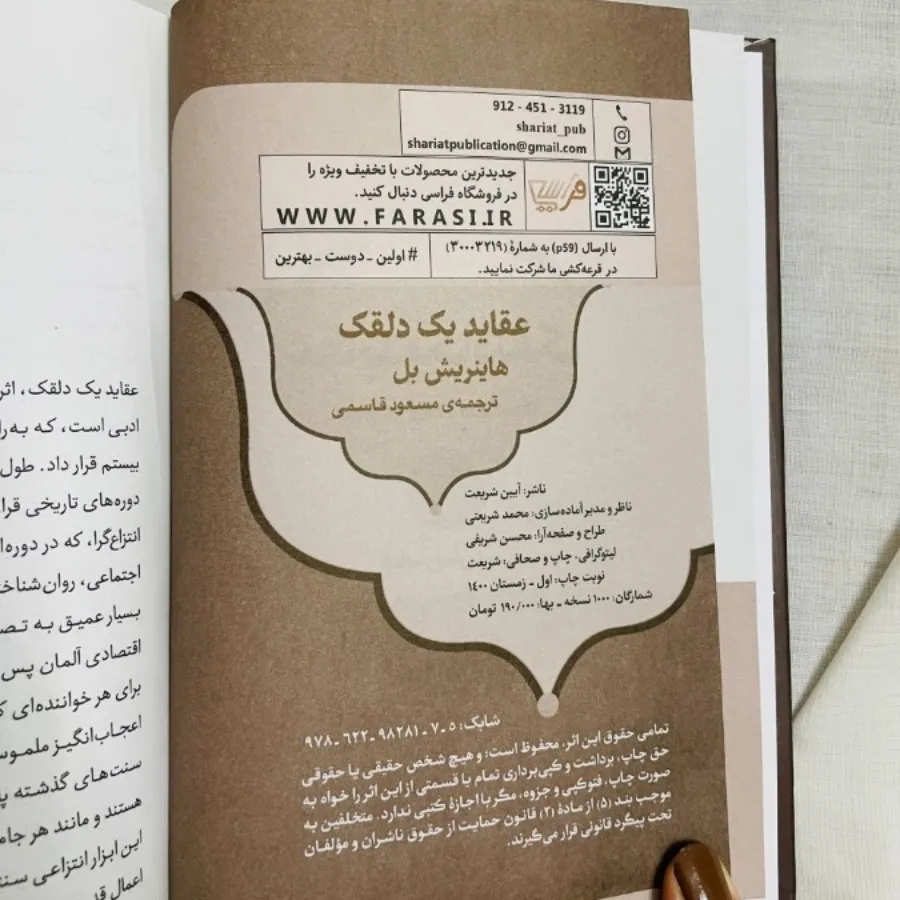 912 - 451 - 3119
shariat_pub
shariatpublication@gmail.com
جدیدترین محصولات با تخفیف ویژه را
در فروشگاه فراسی دنبال کنید.
WWW.FARASI.IR
فراسی
با ارسال (p59) به شمارهٔ (۳۰۰۰۳۲۱۹)
در قرعه‌کشی ما شرکت نمایید.
# اولین ـ دوست ـ بهترین
عقاید یک دلقک
هاینریش بل
ترجمه‌ی مسعود قاسمی
ناشر: آیین شریعت
ناظر و مدیر آماده‌سازی: محمد شریعتی
طراح و صفحه‌آرا: محسن شریفی
لیتوگرافی، چاپ و صحافی: شریعت
نوبت چاپ: اول ـ زمستان ۱۴۰۰
شمارگان: ۱۰۰۰ نسخه ـ بها: ۱۹۰/۰۰۰ تومان
شابک: ۵ ـ ۷ ـ ۹۸۲۸۱ ـ ۶۲۲ ـ ۹۷۸
تمامی حقوق این اثر، محفوظ است؛ و هیچ شخص حقیقی یا حقوقی
حق چاپ، برداشت و کپی‌برداری تمام یا قسمتی از این اثر را خواه به
صورت چاپ، فتوکپی و جزوه، مگر با اجازهٔ کتبی ندارد. متخلفین به
موجب بند (۵) از مادهٔ (۲) قانون حمایت از حقوق ناشران و مؤلفان
تحت پیگرد قانونی قرار می‌گیرند.
عقاید یک دلقک، اثر
ادبی است، که به
بیستم قرار داد. طول
دوره‌های تاریخی
انتزاع‌گرا، که در
اجتماعی،
بسیار عمیق به
اقتصادی آلمان پس
برای هر خواننده‌ای
اعجاب‌انگیز
سنت‌های گذشته
هستند و مانند هر
این ابزار انتزاعی
اعمال